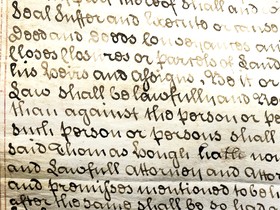 Seal Suffer and Execute or cause
deed and deeds Conveyances and
Closes Closures or parcels of Land
his Heirs and Assigns Be it or
Law shall be lawfully and
than against the person or pe
such person or persons shall
said Thomas Gough hath
and Lawfull Attorney and Attor
and premisses mentioned to be
after the same shall be so had